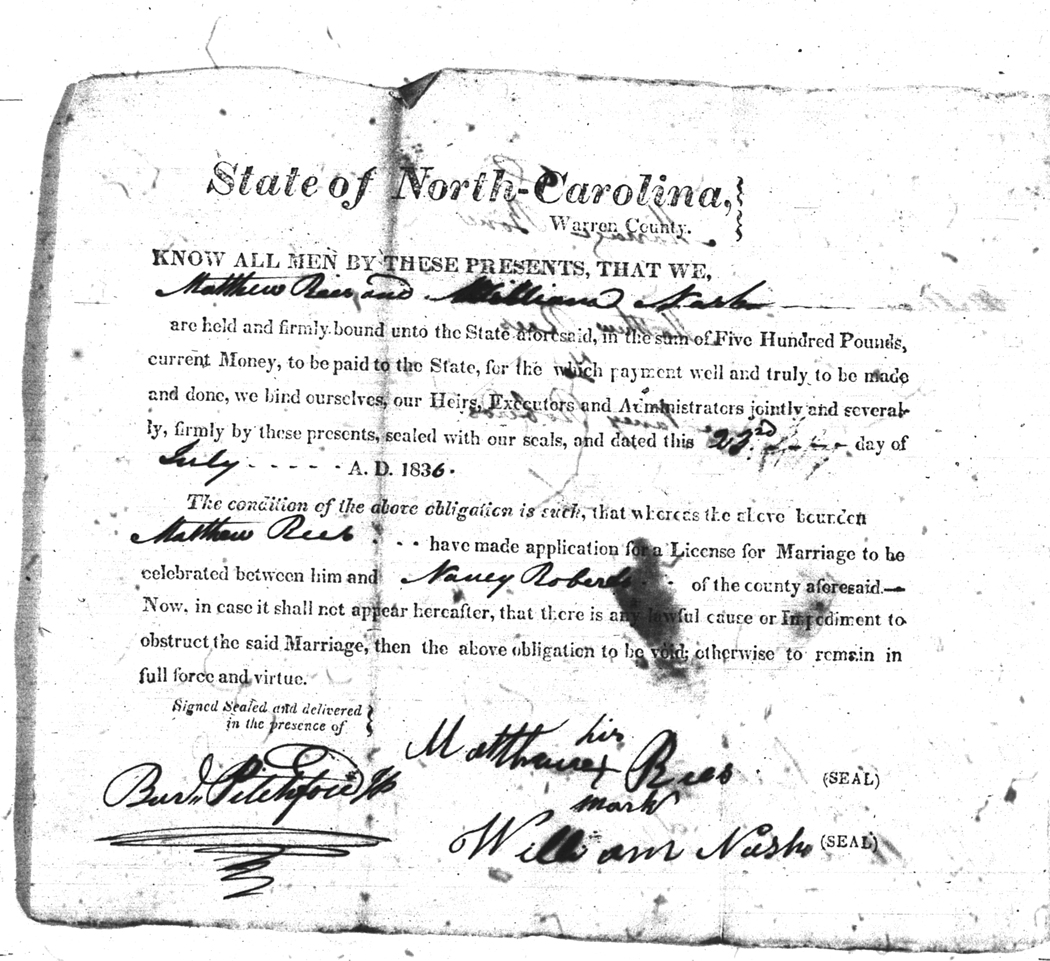 State of North-Carolina,
Warren County.
KNOW ALL MEN BY THESE PRESENTS, THAT WE,
Matthew Rees and William Nash
are held and firmly bound unto the State aforesaid, in the sum of Five Hundred Pounds,
current Money, to be paid to the State, for the which payment well and truly to be made
and done, we bind ourselves, our Heirs, Executors and Administrators jointly and several-
ly, firmly by these presents, sealed with our seals, and dated this 23rd day of
July - - - - - A. D. 1836.
The condition of the above obligation is such, that whereas the above bounden
Matthew Rees - - - have made application for a License for Marriage to be
celebrated between him and Nancy Roberts - - of the county aforesaid.—
Now, in case it shall not appear hereafter, that there is any lawful cause or Impediment to
obstruct the said Marriage, then the above obligation to be void; otherwise to remain in
full force and virtue.
Signed Sealed and delivered
in the presence of
his
Matthew x Rees (SEAL)
mark
Pitchford
William Nash (SEAL)